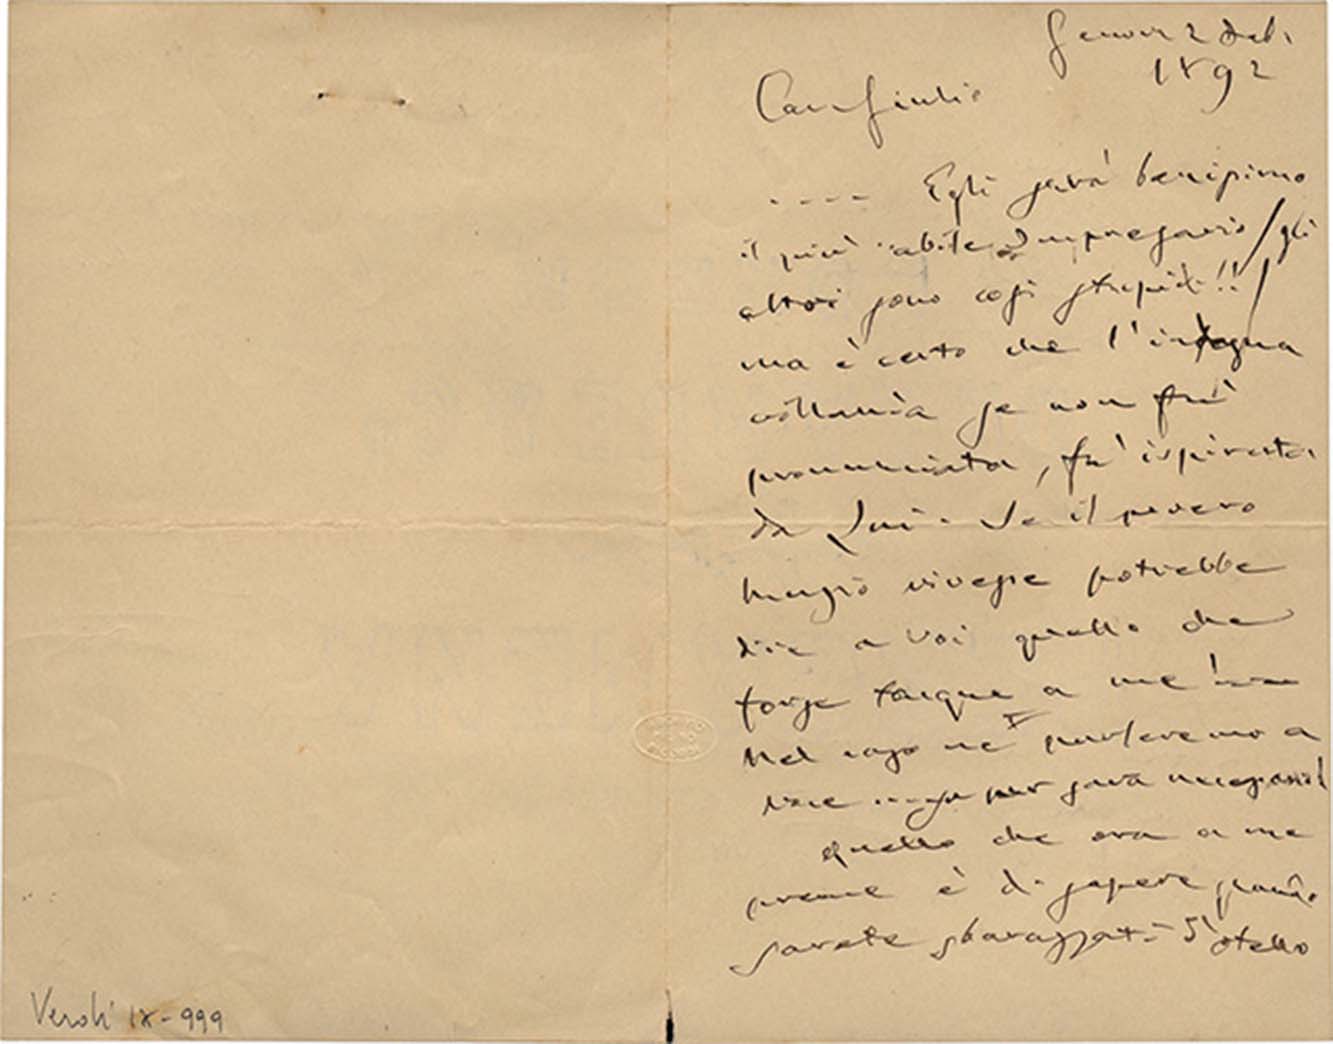 Genova 2 Feb.
1892
Car Giulio
.... Egli sarà benissimo
il più abile Impresario / gli
altri sono così stupidi!! /
ma è certo che l'indegna
villania se non fu
pronunciata, fu ispirata
da Lui. Se il povero
Muzio vivesse potrebbe
dire a voi quello che
forse tacque a me!
Nel caso ne parleremo a
voce se pur sarà necessario!
Quello che ora a me
preme è di sapere quando
sarete sbarazzati d'Otello
Verdi IX-999